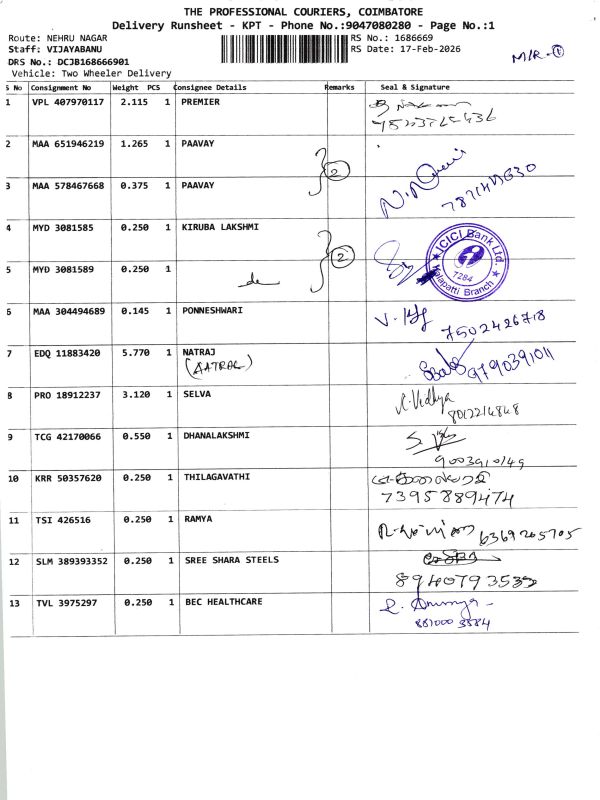 THE PROFESSIONAL COURIERS, COIMBATORE
Delivery Runsheet - KPT - Phone No.:9047080280 - Page No.:1
Route: NEHRU NAGAR RS No.: 1686669
Staff: VIJAYABANU RS Date: 17-Feb-2026
DRS No.: DCJB168666901
Vehicle: Two Wheeler Delivery
M/R-①
S No Consignment No Weight PCS Consignee Details Remarks Seal & Signature
1 VPL 407970117 2.115 1 PREMIER
2 MAA 651946219 1.265 1 PAAVAY
②
3 MAA 578467668 0.375 1 PAAVAY
4 MYD 3081585 0.250 1 KIRUBA LAKSHMI
②
ICICI Bank Ltd.
7284
Kalapatti Branch
5 MYD 3081589 0.250 1
6 MAA 304494689 0.145 1 PONNESHWARI
7502426718
7 EDQ 11883420 5.770 1 NATRAJ
(AATRAL) 9790391011
8 PRO 18912237 3.120 1 SELVA
R. Vidhya
9 TCG 42170066 0.550 1 DHANALAKSHMI
9003910149
10 KRR 50357620 0.250 1 THILAGAVATHI
7395889474
11 TSI 426516 0.250 1 RAMYA
6369205705
12 SLM 389393352 0.250 1 SREE SHARA STEELS
8940793532
13 TVL 3975297 0.250 1 BEC HEALTHCARE
8810003584